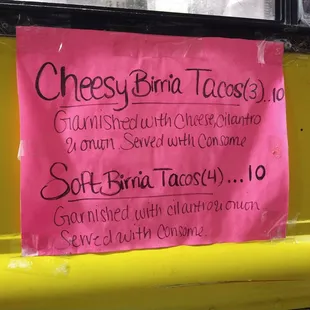 Cheesy Birria Tacos(3)..10
Garnished with Cheese, cilantro
& onion Served with Consome
Soft Birria Tacos(4)...10
Garnished with cilantro & onion
Served with Consome